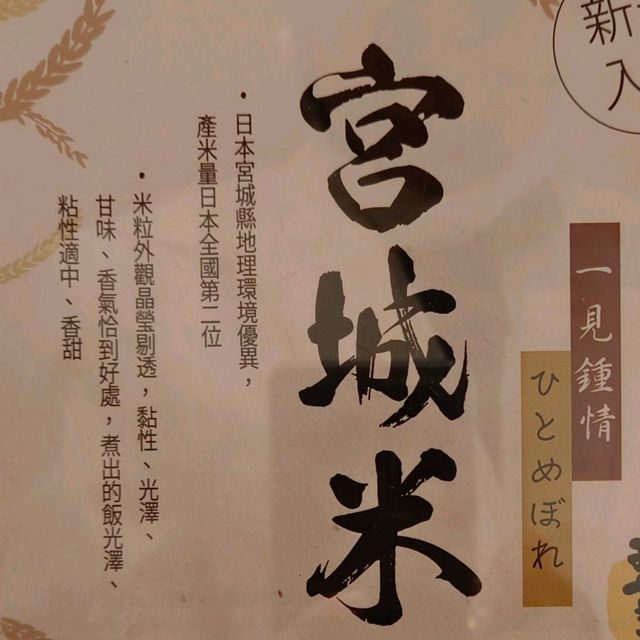 新
入
一見鍾情
ひとめぼれ
宮城米
•日本宮城縣地理環境優異，
產米量日本全國第二位
•米粒外觀晶瑩剔透，黏性、光澤、
甘味、香氣恰到好處，煮出的飯光澤、
粘性適中、香甜